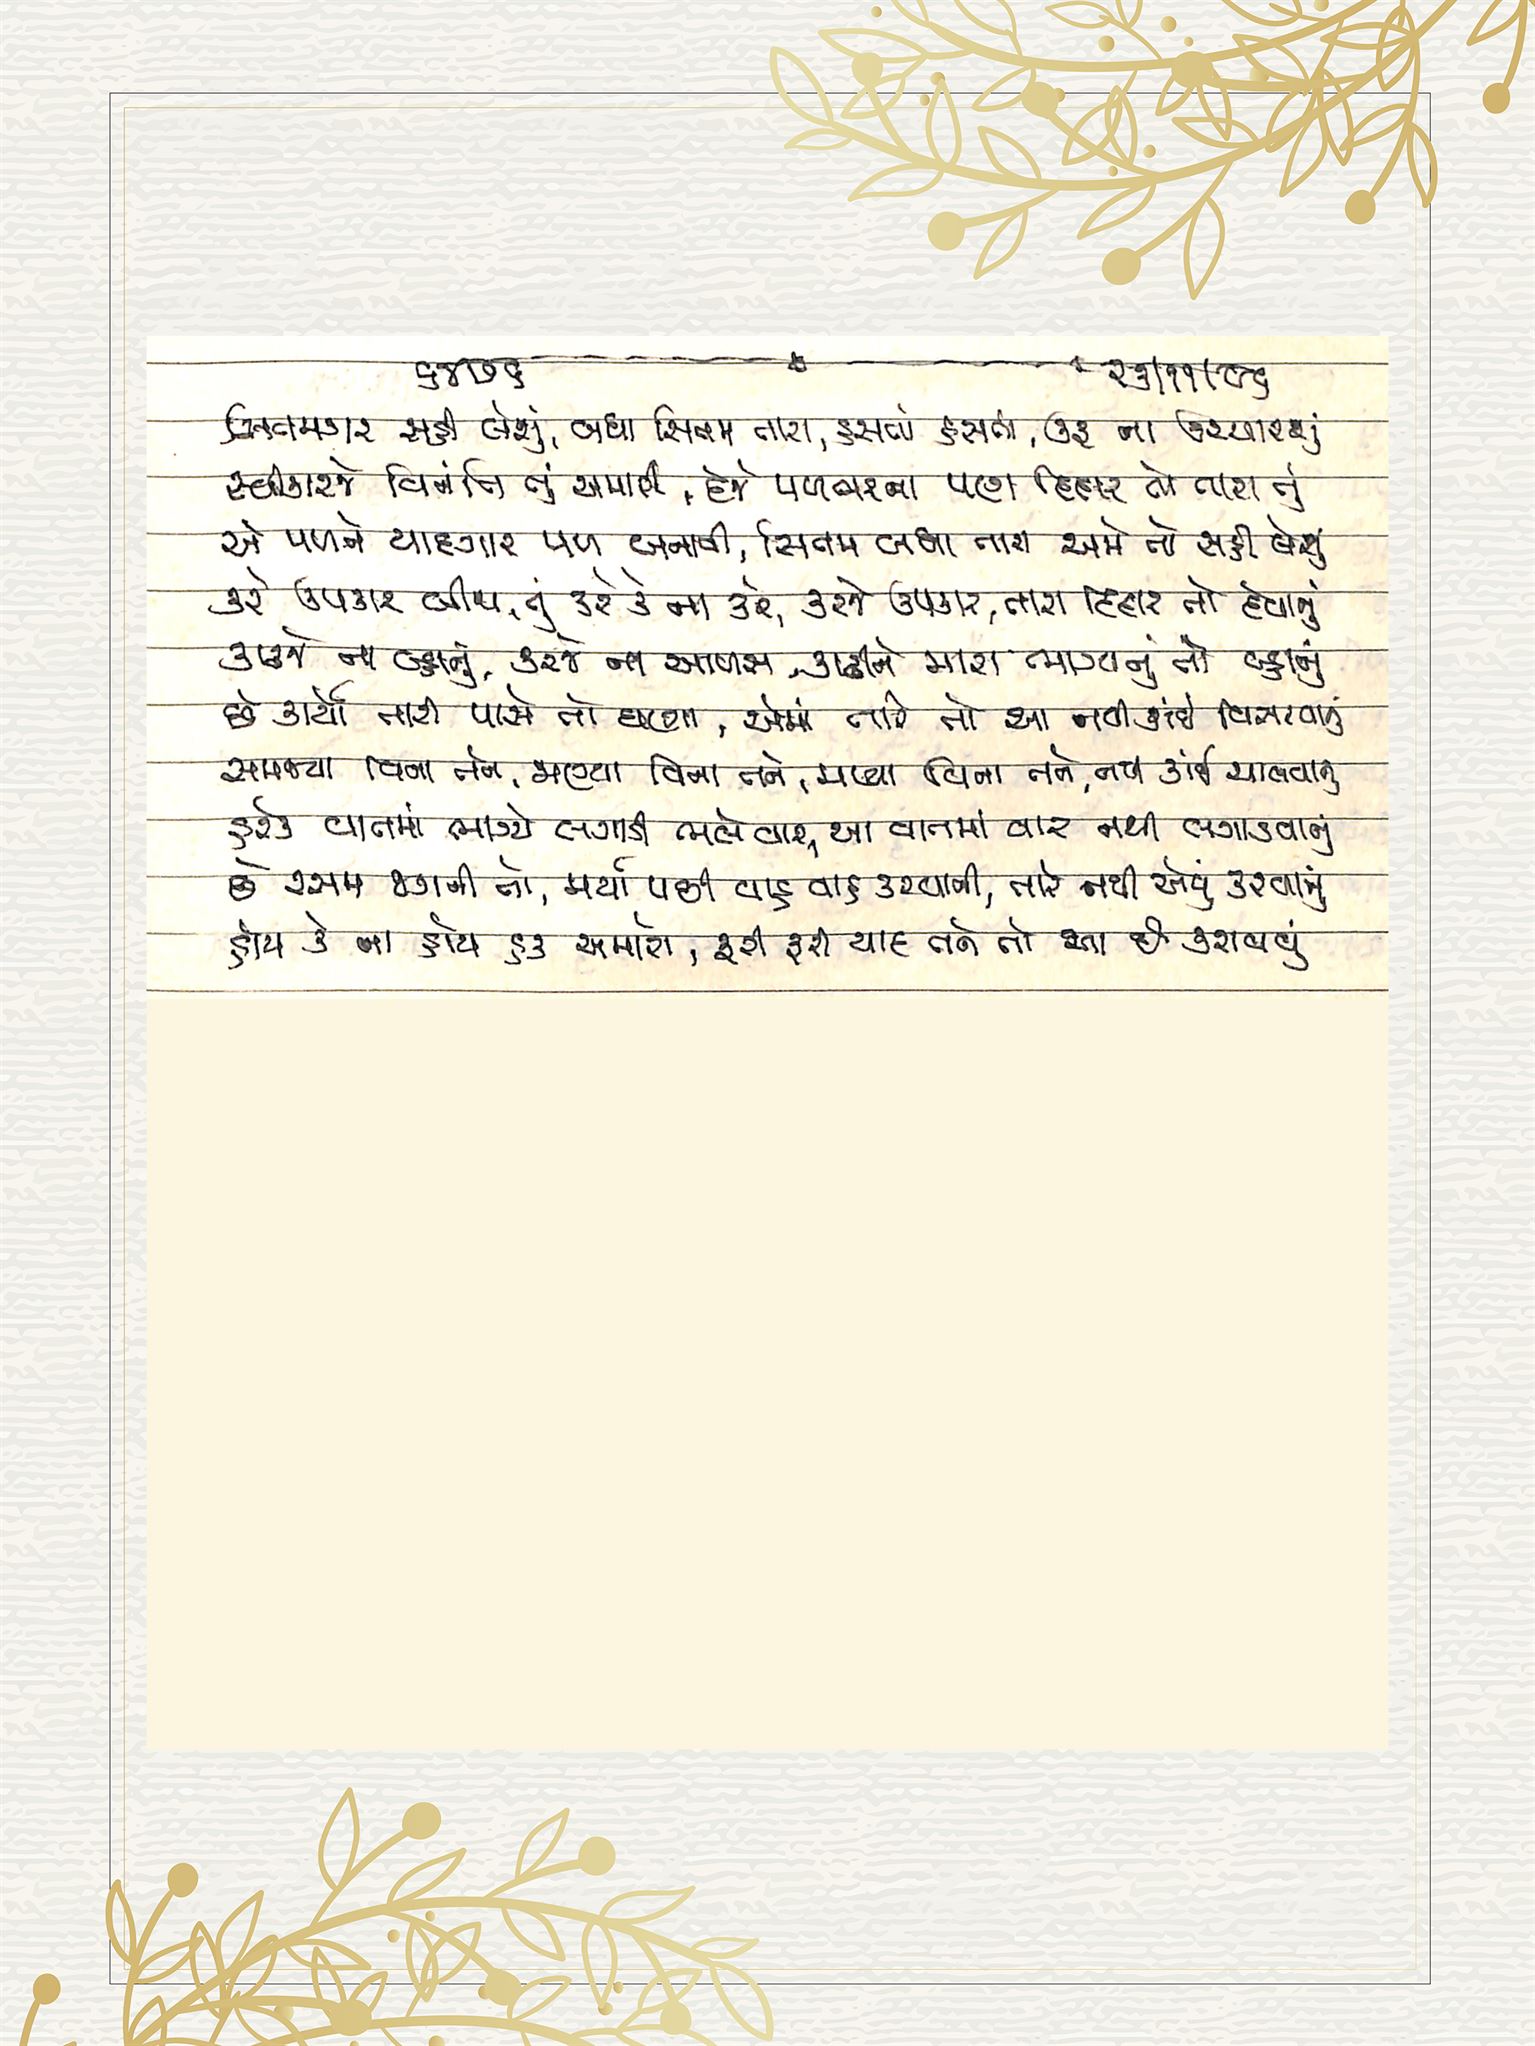 ૬૪૭૬ ૨૩/૧૧/૯૬
સિતમગાર સહી લેશું, બધા સિતમ તારા, હસતાં હસતાં, ઉફ ના ઉચ્ચારશું
સ્વીકારજે વિનંતિ તું અમારી, દેજે પળભરના પણ દિદાર તો તારા તું
એ પળને યાદગાર પળ બનાવી, સિતમ બધા તારા અમે તો સહી લેશું
કરે ઉપકાર બીજા, તું કરે કે ના કરે, કરજે ઉપકાર, તારા દિદાર તો દેવાનું
કાઢજે ના બહાનું, કરજે ના આળસ, કાઢીને મારા ભાગ્યનું તો બહાનું
છે કાર્યો તારી પાસે તો ઘણા, એમાં તારે તો આ નથી કાંઈ વિસરવાનું
સમજ્યા વિના તને, જાણ્યા વિના તને, મળ્યા વિના તને, નથી કાંઈ ચાલવાનું
દરેક વાતમાં ભાગ્યે લગાડી ભલે વાર, આ વાતમાં વાર નથી લગાડવાનું
છે રસમ જગની તો, મર્યા પછી વાહ વાહ કરવાની, તારે નથી એવું કરવાનું
હોય કે ના હોય હક અમારો, ફરી ફરી યાદ તને તો આ છે કરાવવું